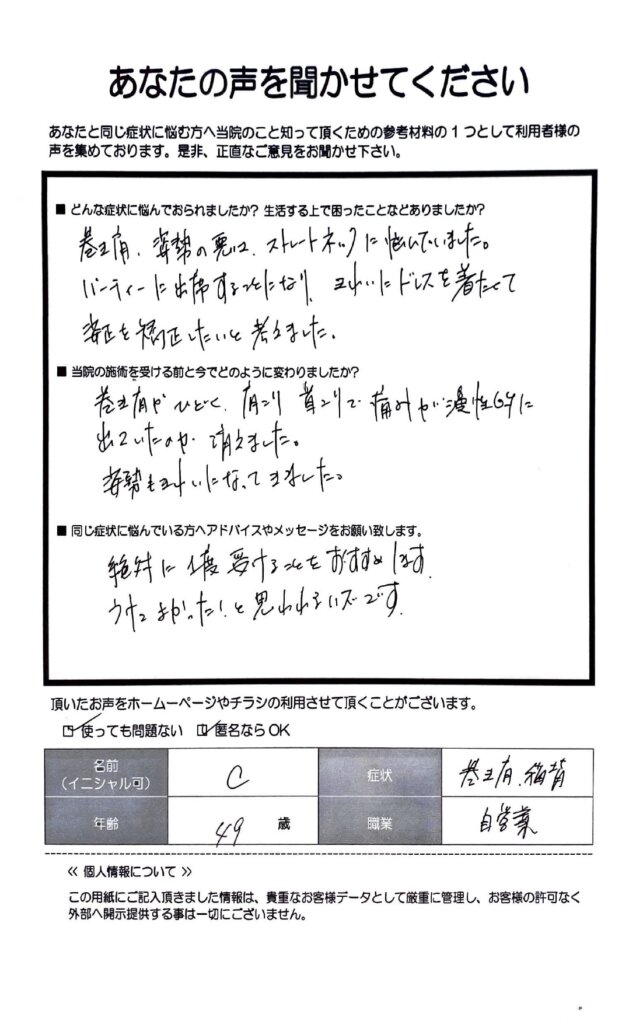 あなたの声を聞かせてください
あなたと同じ症状に悩む方へ当院のこと知って頂くための参考材料の1つとして利用者様の
声を集めております。是非、正直なご意見をお聞かせ下さい。
■ どんな症状に悩んでおられましたか? 生活する上で困ったことなどありましたか?
巻き肩、姿勢の悪さ、ストレートネックに悩んでいました。
パーティーに出席することになり、きれいにドレスを着たくて
姿正を矯正したいと考えました。
■ 当院の施術を受ける前と今でどのように変わりましたか?
巻き肩がひどく、肩こり首こりで痛みが慢性的に
出ていたのが消えました。
姿勢もきれいになってきました。
■ 同じ症状に悩んでいる方へアドバイスやメッセージをお願い致します。
絶対に1度受けることをおすすめします。
うけてよかった!と思われるハズです。
頂いたお声をホームーページやチラシの利用させて頂くことがございます。
☑ 使っても問題ない ☑ 匿名ならOK
名前 C 症状 巻き肩、猫背
(イニシャル可)
年齢 49 歳 職業 自営業
≪ 個人情報について ≫
この用紙にご記入頂きました情報は、貴重なお客様データとして厳重に管理し、お客様の許可なく
外部へ開示提供する事は一切にございません。